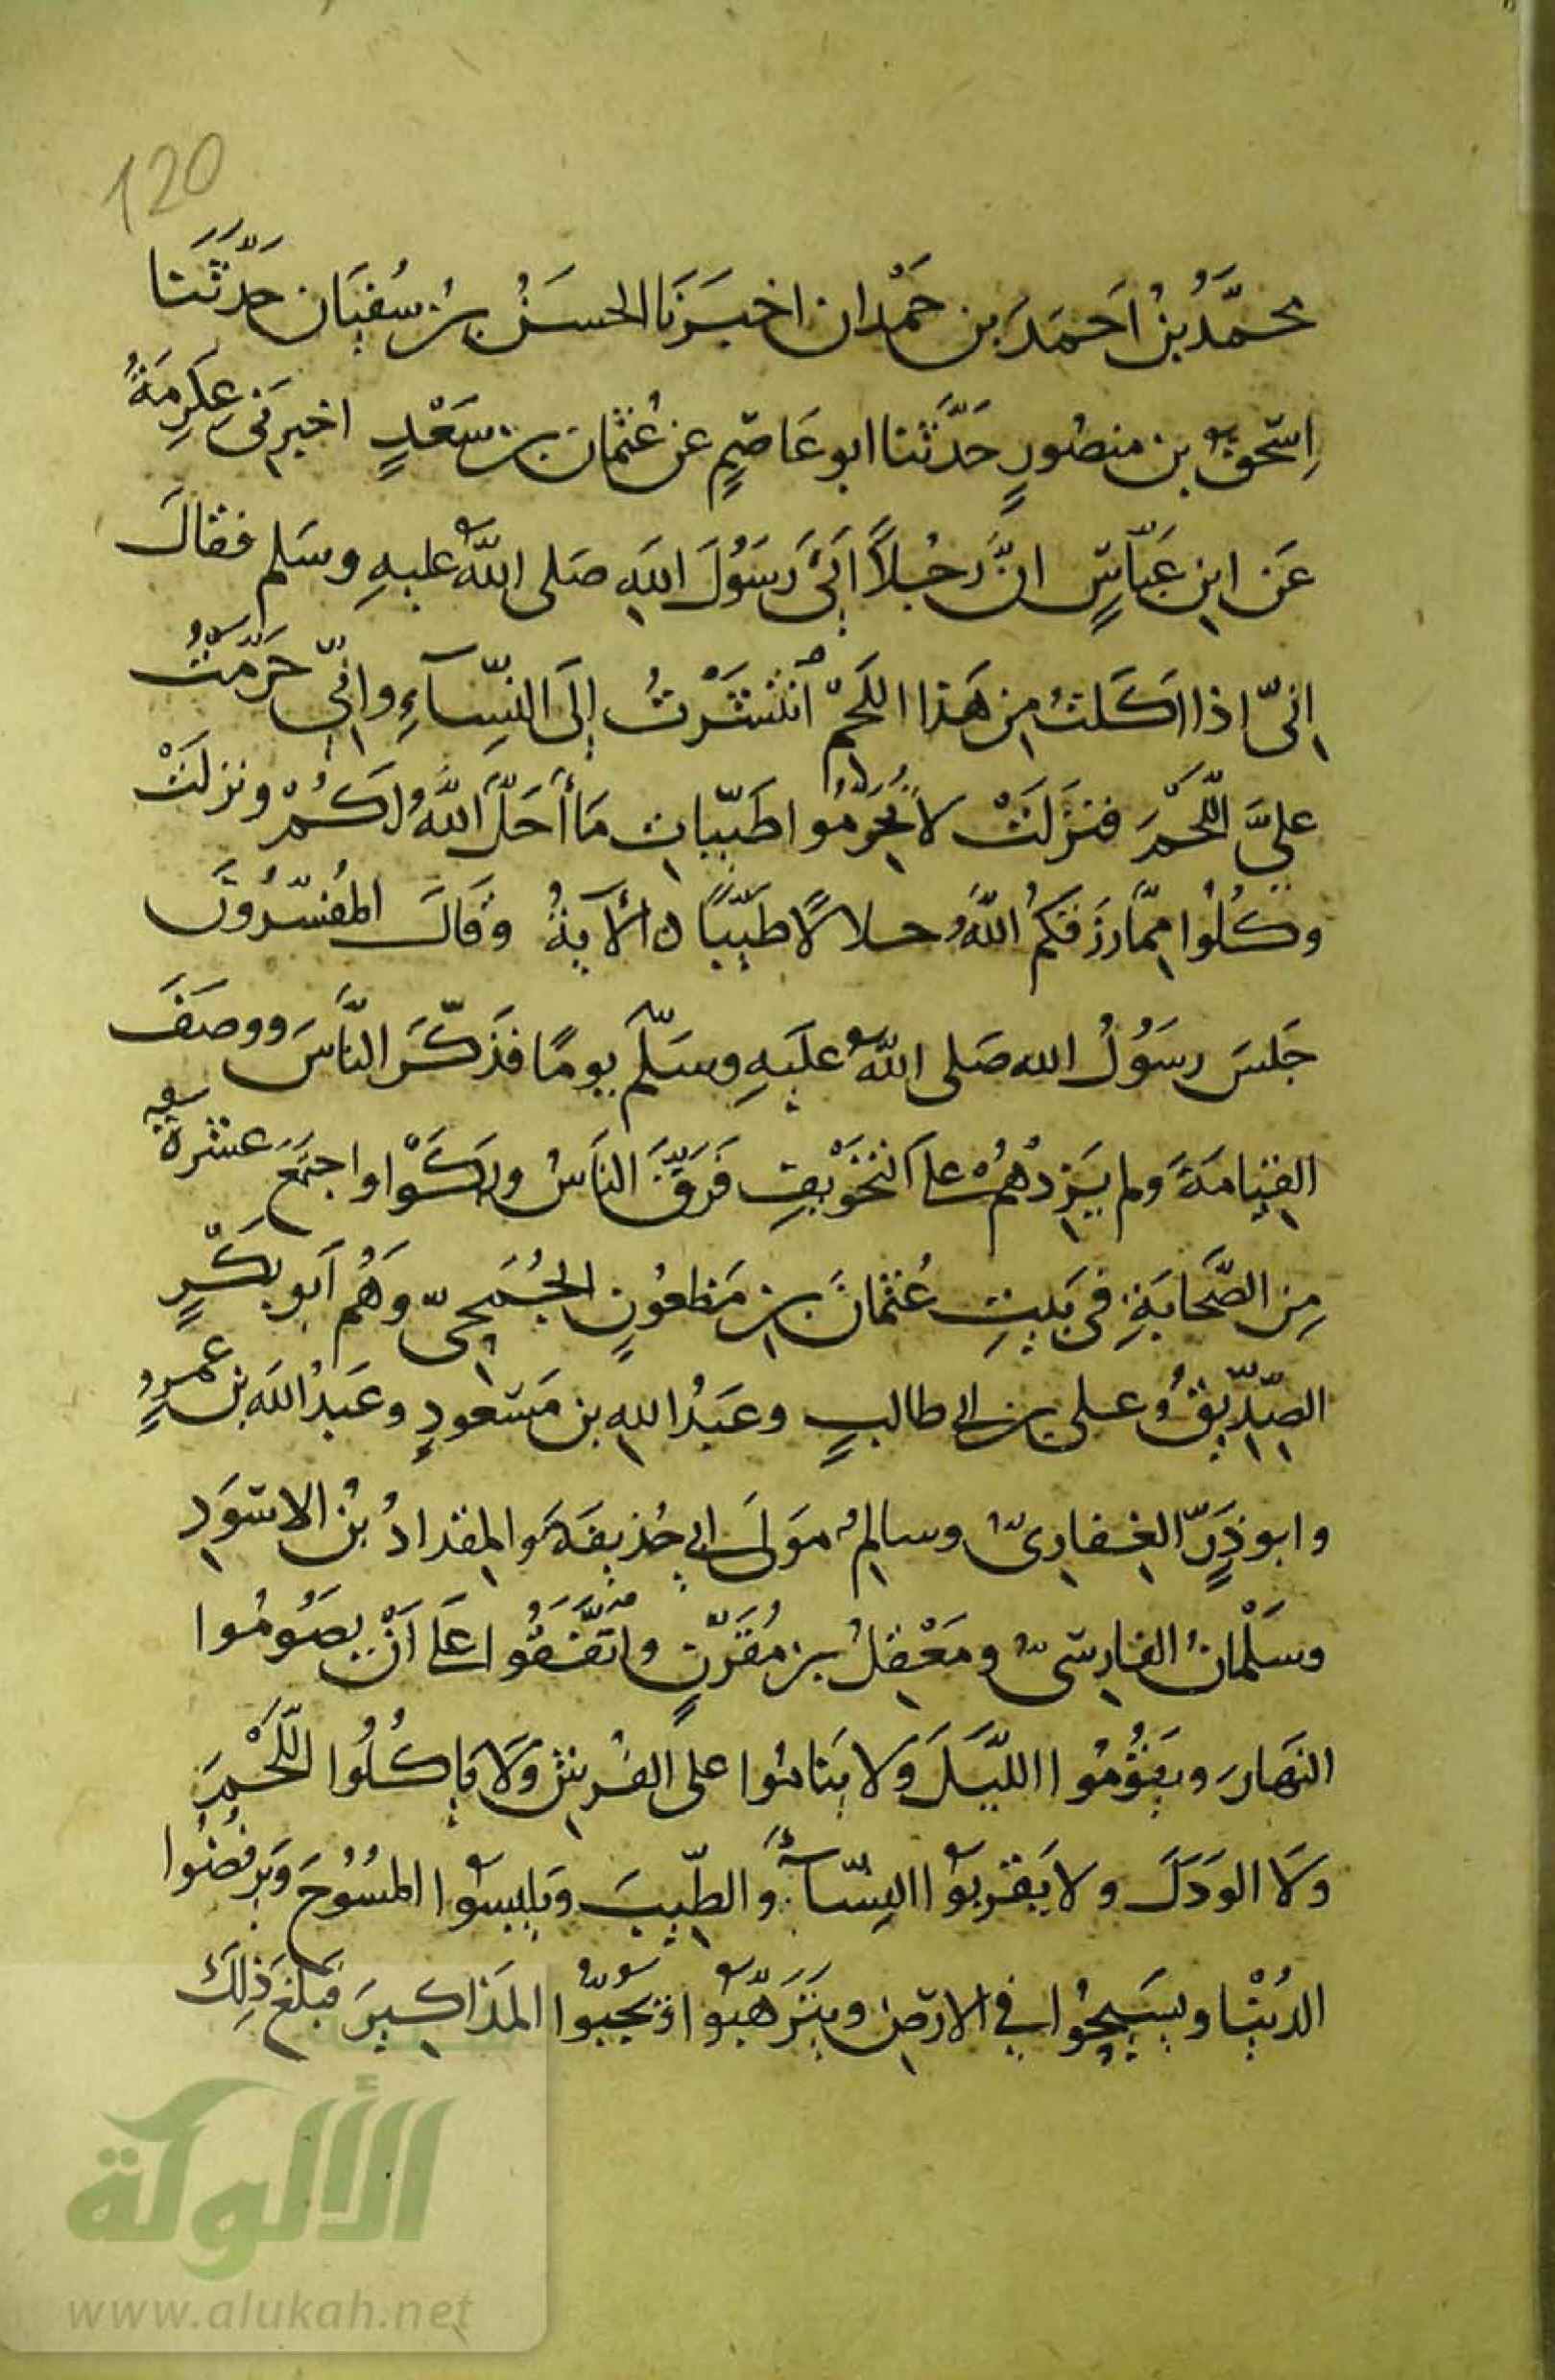 120
محمَّدُ بنُ اَحمَدَ بن حَمْدان اخبَرَنَا الحسَنُ بنُ سُفيَان حَدَّثَنا
اِسحٰقُ بن منصُورٍ حَدَّثَنا ابو عَاصِمٍ عن عُثمان بن سَعْدٍ اخبرَنى عِكرِمَةُ
عَن ابنِ عَبّاسٍ انَّ رَجُلاً اَتىَ رَسُولَ اللهِ صَلى اللهُ عليهِ وسَلم فقالَ
اِنىّ اذا اَكَلتُ مِن هَذا اللَحمْ اَنتشَرْتُ إلىَ النِّسَآءِ وانِىّ حَرَّمْتُ
علىَّ اللَّحْمَ فنزَلَتْ لا تُحَرّمُوا طَيّبَاتِ مَا أحَلَّ اللَّهُ لَكُمْ ونزلَتْ
وكُلُوا مِمَّا رَزَقكُمُ اللَّهُ حلالًا طَيّبًا ں الآيةُ وَقالَ المُفسّرُونَ
جَلسَ رسَوُلُ الله صَلى اللَّهُ عليَهِ وسَلّمَ يومًا فَذكَّرَ النَّاسَ ووصَفَ
القِيامَةَ ولم يَزِدْهُمْ علىَ التخَوْيفِ فَرَقَّ النَاسُ وبَكَوْا واجتمَعَ عشرةٌ
مِن الصَّحابَةِ فى بَيتِ عُثمانَ بنِ مَظعُونٍ الجُمَحِىّ وَهُم اَبو بَكْرٍ
الصِّدِّيقُ وعلى بن ابى طالبٍ وعَبدُ اللهِ بن مَسْعودٍ وعَبدُ الله بن عمرٍو
وابو ذَرٍّ الغِفارِىُّ وسالِمُ مَولىَ ابى حُذيفَةَ والمِقدادُ بْنُ الاسْوَدِ
وسَلْمانُ الفارِسىُّ ومَعْقِلُ بن مُقَرّنٍ واتَّفَقُوا علَى اَنْ يصَوُمُوا
النهَارَ ويقوُمُوا الليَّلَ وَلا يَنامُوا على الفُرشِ وَلَا يأكُلُوا اللَّحْمَ
وَلَا الوَدَكَ ولا يَقربَوُا النِّسَآءَ والطِّيبَ ويَلبِسَوُا المُسُوُحَ وَيَرفُضُوا
الدُنيْا ويسَيحُوا فى الارضِ ويَتَرَهَّبوُا ويَجُبّوُا المَذاكِيرَ فبَلغَ ذلِكَ
الألوكة
www.alukah.net